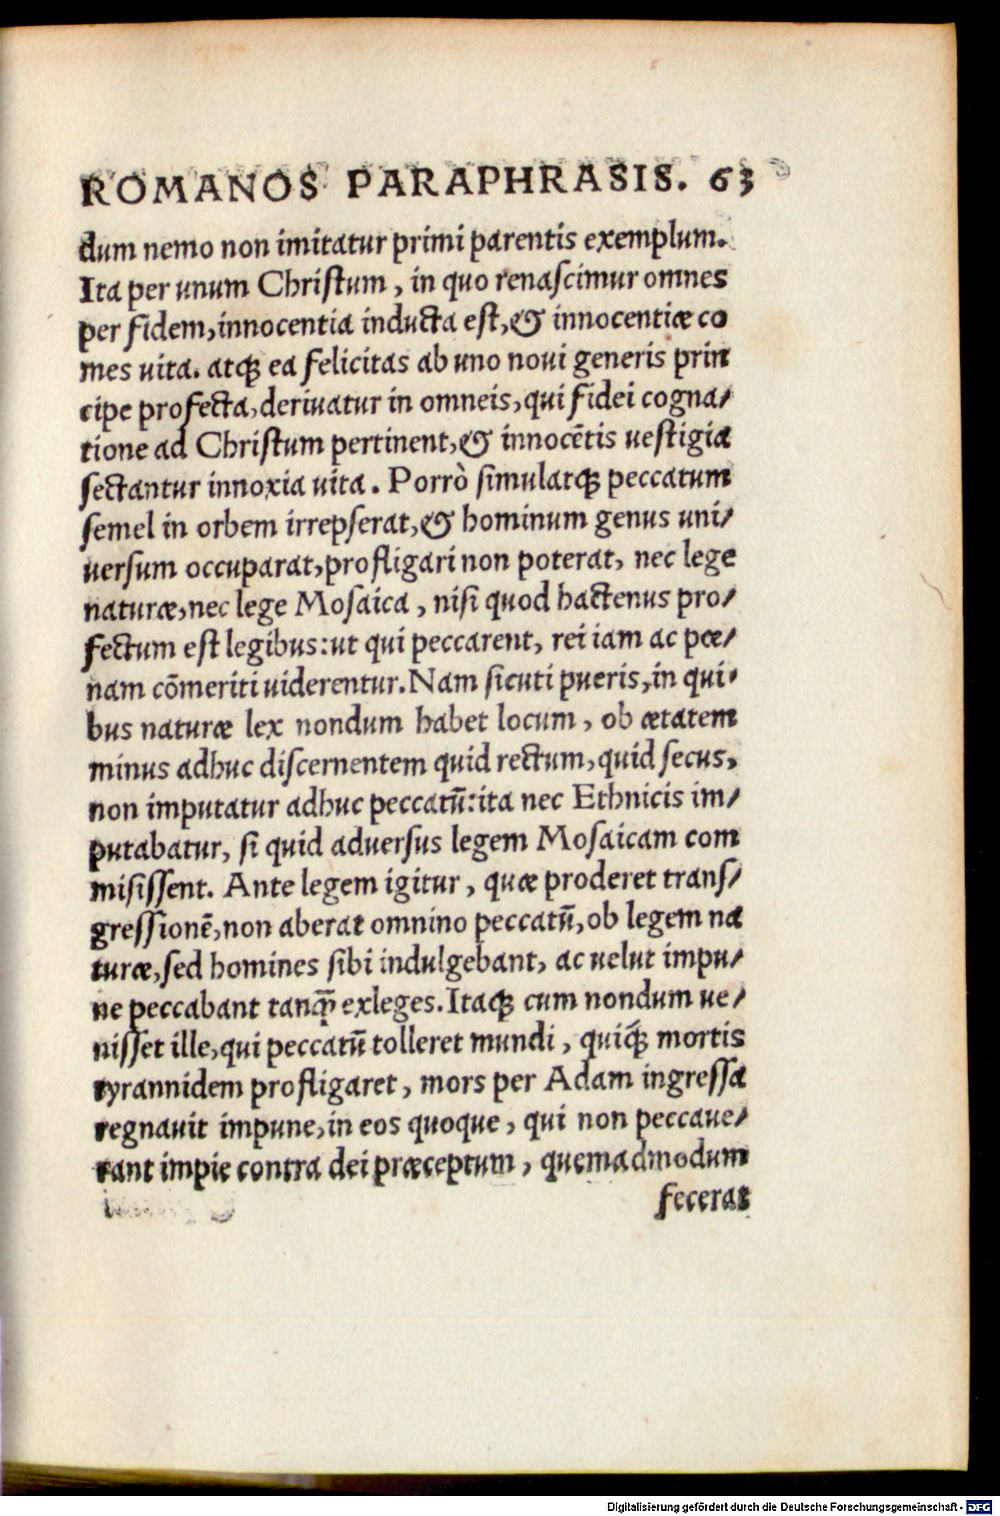 ROMANOS PARAPHRASIS. 63
dum nemo non imitatur primi parentis exemplum.
Ita per unum Christum, in quo renascimur omnes
per fidem, innocentia inducta est, & innocentiæ co
mes uita. atq́ꝫ ea felicitas ab uno noui generis prin
cipe profecta, deriuatur in omneis, qui fidei cogna/
tione ad Christum pertinent, & innocẽtis uestigia
sectantur innoxia uita. Porrò simulatq́ꝫ peccatum
semel in orbem irrepserat, & hominum genus uni/
uersum occuparat, profligari non poterat, nec lege
naturæ, nec lege Mosaica, nisi quod hactenus pro/
fectum est legibus: ut qui peccarent, rei iam ac pœ/
nam cõmeriti uiderentur. Nam sicuti pueris, in qui/
bus naturæ lex nondum habet locum, ob ætatem
minus adhuc discernentem quid rectum, quid secus,
non imputatur adhuc peccatũ: ita nec Ethnicis im/
putabatur, si quid aduersus legem Mosaicam com
misissent. Ante legem igitur, quæ proderet trans/
gressionẽ, non aberat omnino peccatũ, ob legem na
turæ, sed homines sibi indulgebant, ac uelut impu/
ne peccabant tanq̃ exleges. Itaqꝫ cum nondum ue/
nisset ille, qui peccatũ tolleret mundi, quiq́ꝫ mortis
tyrannidem profligaret, mors per Adam ingressa
regnauit impune, in eos quoque, qui non peccaue/
rant impie contra dei præceptum, quemadmodum
fecerat
Digitalisierung gefördert durch die Deutsche Forschungsgemeinschaft - DFG